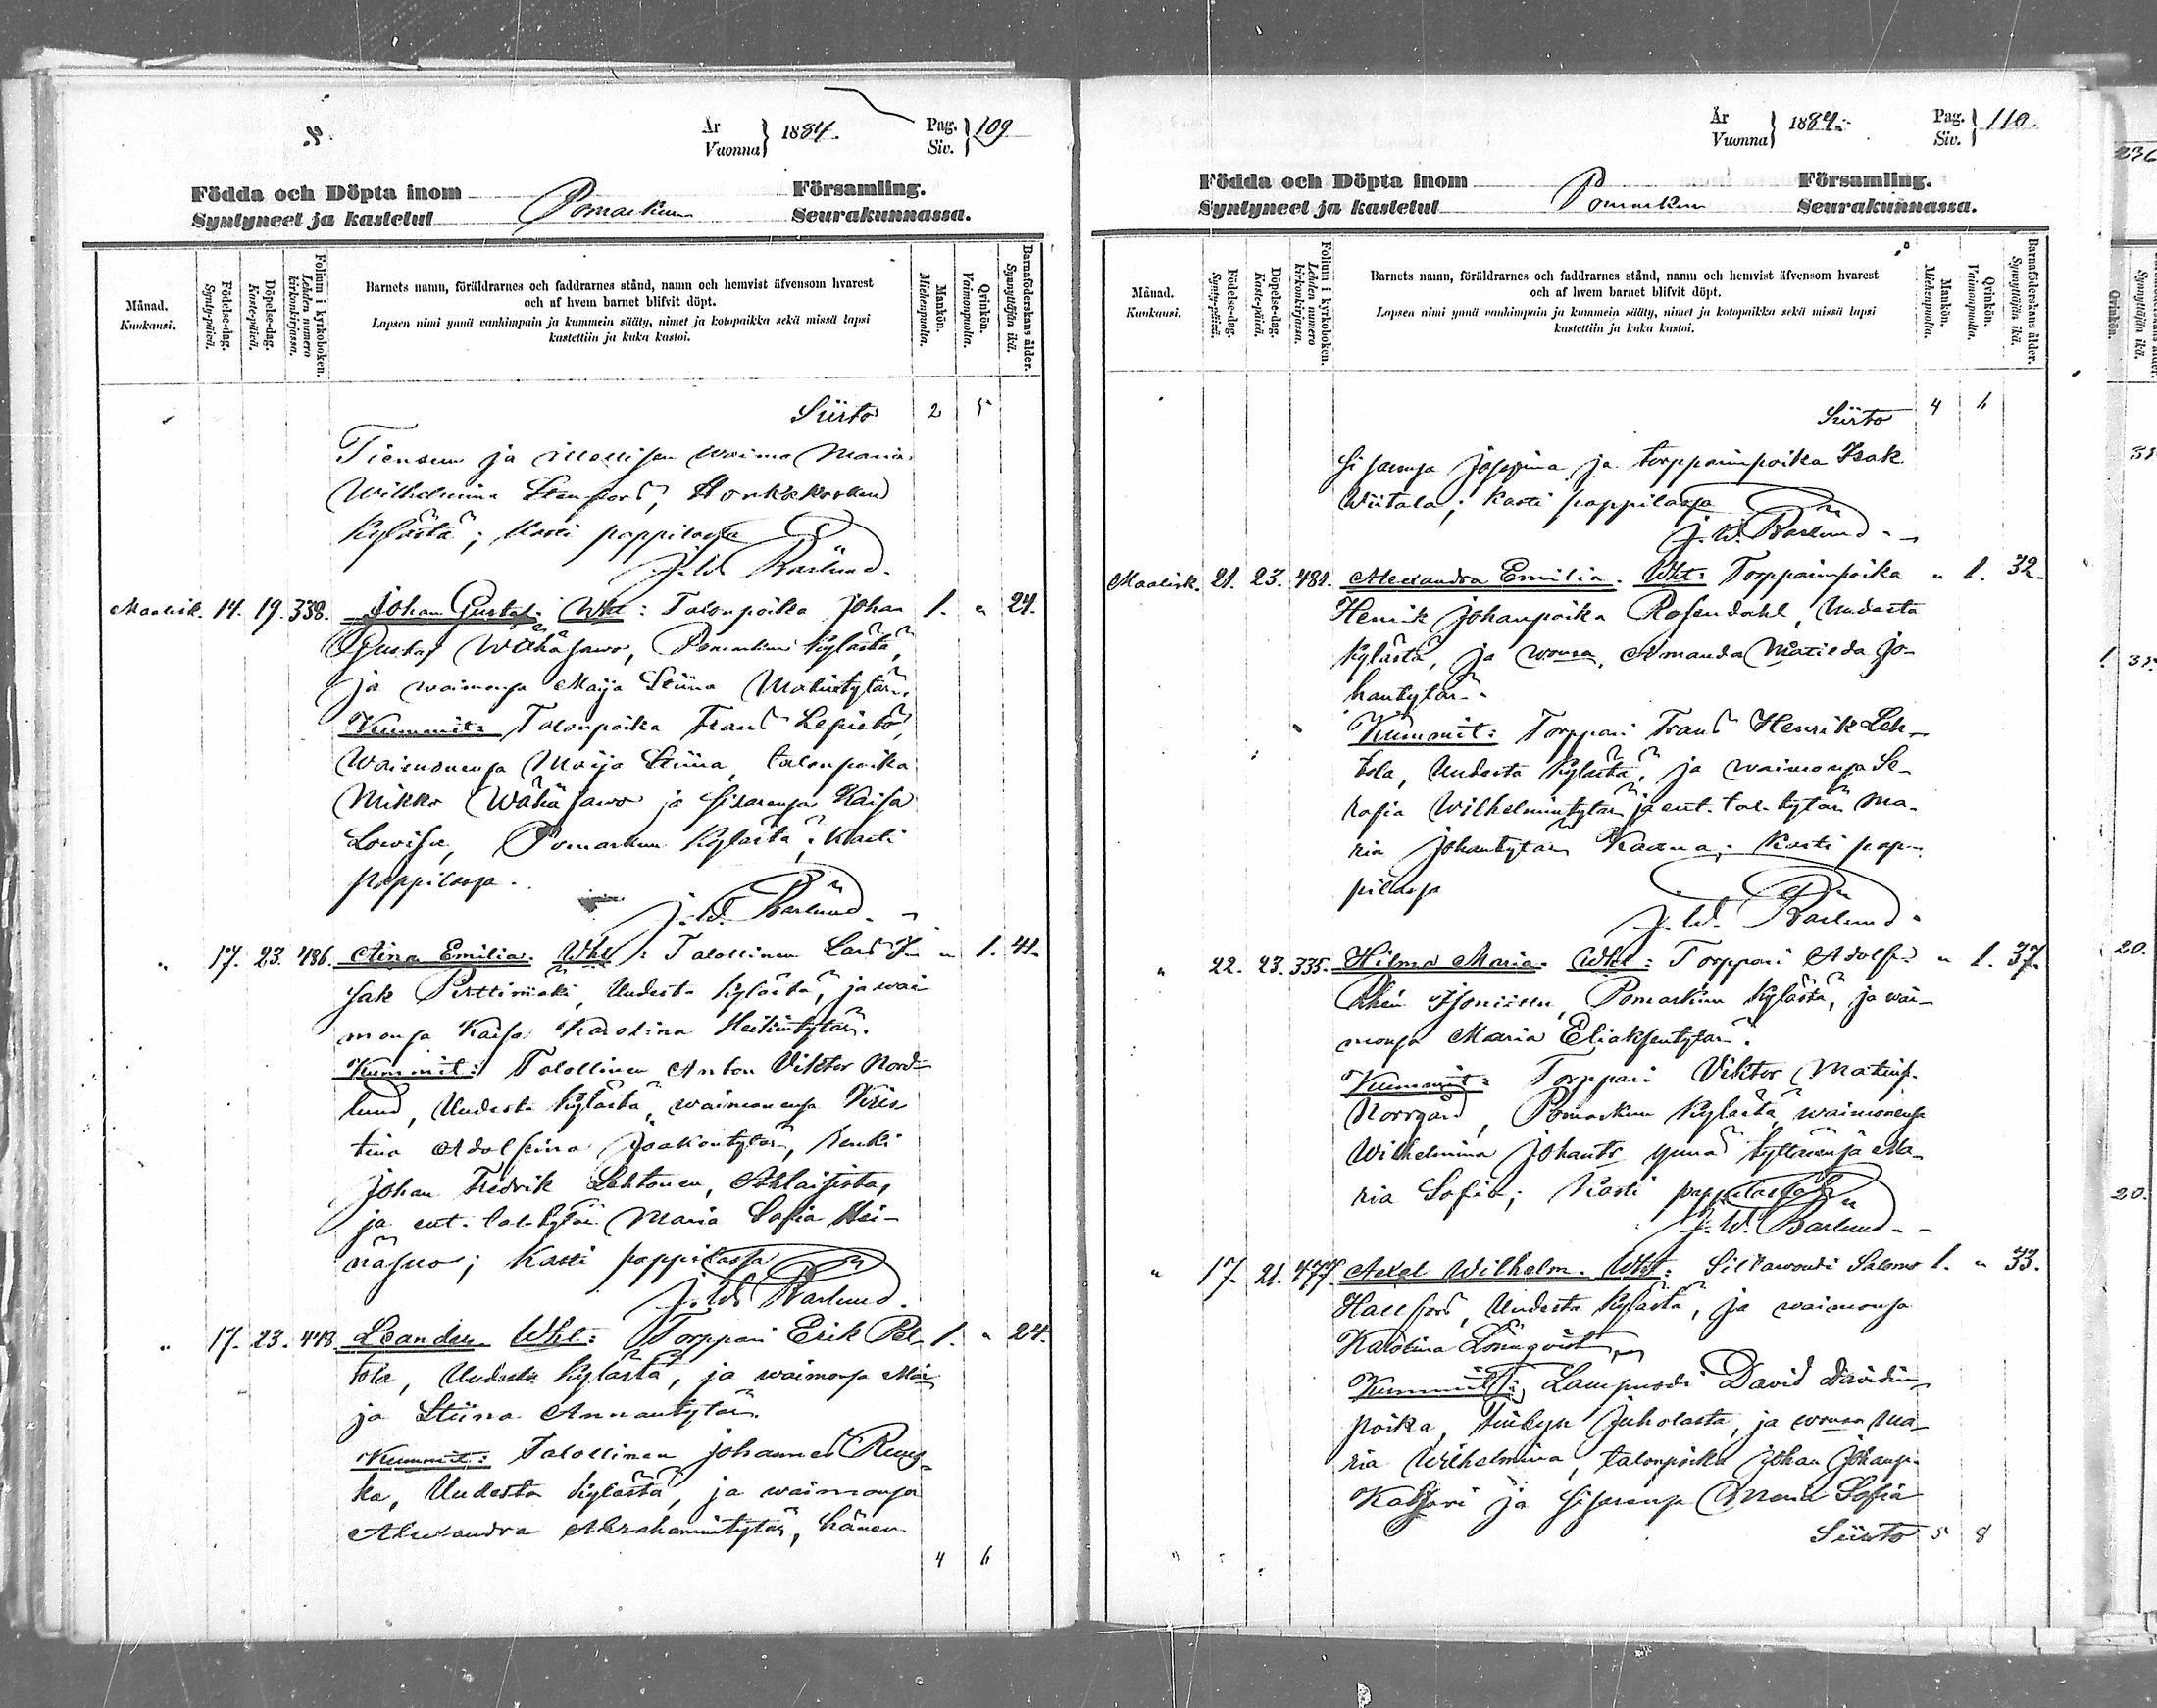 År
Vuonna } 1884.
Pag.
Siv. } 109
Födda och Döpta inom Församling.
Syntyneet ja kastetut Pomarkun Seurakunnassa.
Månad.
Kuukausi.
Födelse-dag.
Synty-päivä.
Döpelse-dag.
Kaste-päivä.
Folium i kyrkoboken.
Lehden numero kirkonkirjassa.
Barnets namn, föräldrarnes och faddrarnes stånd, namn och hemvist äfvensom hvarest
och af hvem barnet blifvit döpt.
Lapsen nimi ynnä vanhimpain ja kummein sääty, nimet ja kotopaikka sekä missä lapsi
kastettiin ja kuka kastoi.
Mankön.
Miehenpuolta.
Qvinkön.
Vaimonpuolta.
Barnaföderskans ålder.
Synnyttäjän ikä.
Siirto 2 5
Tiensuu ja itsellisen waimo Maria
Wilhelmina Stenfors, Honkakosken
kylästä; kasti pappilassa
J. W. Barlund.
Maalisk. 14. 19. 338. Johan Gustaf. Wht: Talonpoika Johan 1. " 24.
Gustaf Wähäsawo, Pomarkun kylästä,
ja waimonsa Maija Stiina Matintytär.
Kummit: Talonpoika Frans Lepistö,
Waimonensa Maija Stiina, talonpoika
Mikko Wähäsawo ja sisarensa Kaisa
Lowisa, Pomarkun kylästä; kasti
pappilassa.
J. W. Barlund.
" 17. 23. 486. Aina Emilia. Wht: Talollinen Lars I- " 1. 41.
sak Perttimäki, Uudesta kylästä, ja wai
monsa Kaisa Karolina Heikintytär.
Kummit: Talollinen Anton Viktor Nord-
lund, Uudesta kylästä, waimonensa Kris
tina Adolfina Jaakontytär, renki
Johan Fredrik Lehtonen, Ahlaisista,
ja ent. tal-tytär Maria Sofia Hei-
näsuo; kasti pappilassa
J. W. Barlund.
" 17. 23. 473. Leander. Wht: Torppari Erik Pel- 1. " 24.
tola, Uudesta kylästä, ja waimonsa Mai
ja Stiina Annantytär.
Kummit: Talollinen Johannes Ruus-
ka, Uudesta kylästä, ja waimonsa
Alexandra Abrahamintytär, hänen
4 6
År
Vuonna } 1884.
Pag.
Siv. } 110.
Födda och Döpta inom Församling.
Syntyneet ja kastetut Pomarkun Seurakunnassa.
Månad.
Kuukausi.
Födelse-dag.
Synty-päivä.
Döpelse-dag.
Kaste-päivä.
Folium i kyrkoboken.
Lehden numero kirkonkirjassa.
Barnets namn, föräldrarnes och faddrarnes stånd, namn och hemvist äfvensom hvarest
och af hvem barnet blifvit döpt.
Lapsen nimi ynnä vanhimpain ja kummein sääty, nimet ja kotopaikka sekä missä lapsi
kastettiin ja kuka kastoi.
Mankön.
Miehenpuolta.
Qvinkön.
Vaimonpuolta.
Barnaföderskans ålder.
Synnyttäjän ikä.
Siirto 4 6
sisarensa Josefina ja torpparinpoika Isak
Wiitala; kasti pappilassa
J. W. Barlund.
Maalisk. 21. 23. 481. Alexandra Emilia. Wht: Torpparinpoika " 1. 32.
Henrik Johanpoika Rosendahl, Uudesta
kylästä, ja wmsa Amanda Matilda Jo-
hantytär.
Kummit: Torppari Frans Henrik Leh-
tola, Uudesta kylästä, ja waimonsa Se-
rafia Wilhelmintytär ja ent. tal-tytär Ma-
ria Johantytär; kasti pap-
pilassa
J. W. Barlund.
" 22. 23. 335. Hilma Maria. Wht: Torppari Adolf " 1. 37.
Pomarkun kylästä, ja wai-
monsa Maria Eliaksentytär.
Kummit: Torppari Viktor Matinp.
Norrgård, Pomarkun kylästä, waimonensa
Wilhelmina Johantr ynnä tyttärensä Ma-
ria Sofia; kasti pappilassa
J. W. Barlund.
" 17. 21. 477. Axel Wilhelm. Wht: Siltawouti Salomo 1. " 33.
Hallfors, Uudesta kylästä, ja waimonsa
Karolina Lönnqvist
Kummit: Lampuodi David Davidin-
poika, Juholasta, ja wmsa Ma-
ria Wilhelmina, talonpoika Johan Johanp.
Katsari ja sisarensa Maria Sofia
Siirto 5 8